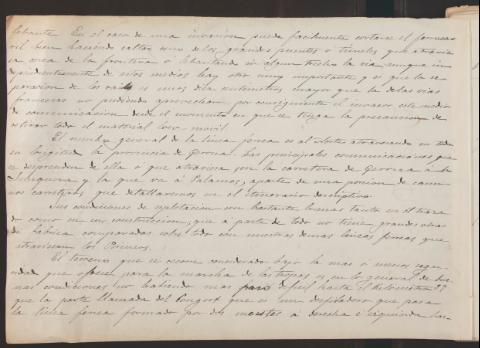 labante. En el caso de una invasion puede facilmente cortarse el ferrocar
ril bien haciendo saltar uno de los grandes puentes ó túneles que atraviesa
cerca de la frontera ó levantando en algun trecho la via, aunque in
dependientemente de estos medios hay otro muy importante, y es que la se
paracion de los rails es unos diez centimetros mayor que la de las vias
francesas no pudiendo aprovechar por consiguiente el invasor este medio
de comunicacion desde el momento en que se tenga la precaucion de
retirar todo el material loco-movil
El rumbo general de la linea ferrea es al Norte atravesando en toda
su longitud la provincia de Gerona. Las principales comunicaciones que
se desprenden de ella ó que atraviesa son la carretera de Gerona á la
y la que va á Palamos, aparte de una porcion de cami
nos carreteros que detallaremos en el Itinerario descriptivo
Sus condiciones de esplotacion son bastante buenas tanto en el traza
do como en su construccion, que á parte de todo no tiene grandes obras
de fabrica comparadas sobre todo con nuestras demas lineas ferreas que
atraviesan los Pirineos.
El terreno que se recorre considerado bajo la mas ó menos segu
ridad que ofrece para la marcha de las tropas es en lo general de bue
nas condiciones no habiendo mas paso dificil hasta el kilometro
que la parte llamada del Congost que es un desfiladero que pasa
la linea ferrea formado por dos montes á derecha é izquierda las